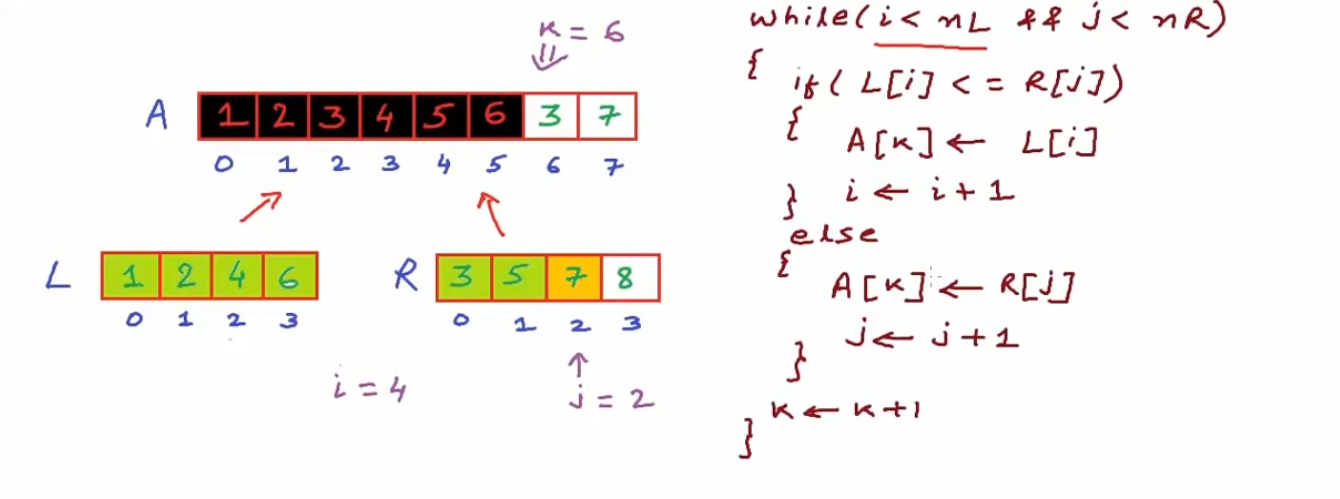 K = 6
A 1 2 3 4 5 6 3 7
0 1 2 3 4 5 6 7
L 1 2 4 6
0 1 2 3
R 3 5 7 8
0 1 2 3
i = 4
j = 2
while( i < nL && j < nR)
{
if( L[i] <= R[j])
{
A[K] ← L[i]
i ← i + 1
}
else
{
A[K] ← R[j]
j ← j + 1
}
K ← K + 1
}